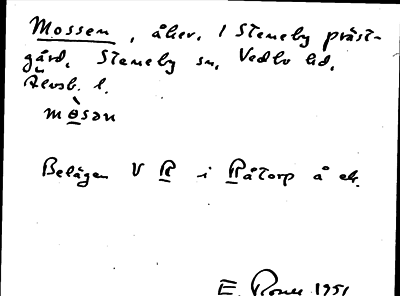 Mossen, åker, 1 Steneby präst-
gård, Steneby sn, Vedbo hd,
Älvsb. l.
mo̱sən
Belägen V R i Råtorp å ek.
E. 1951